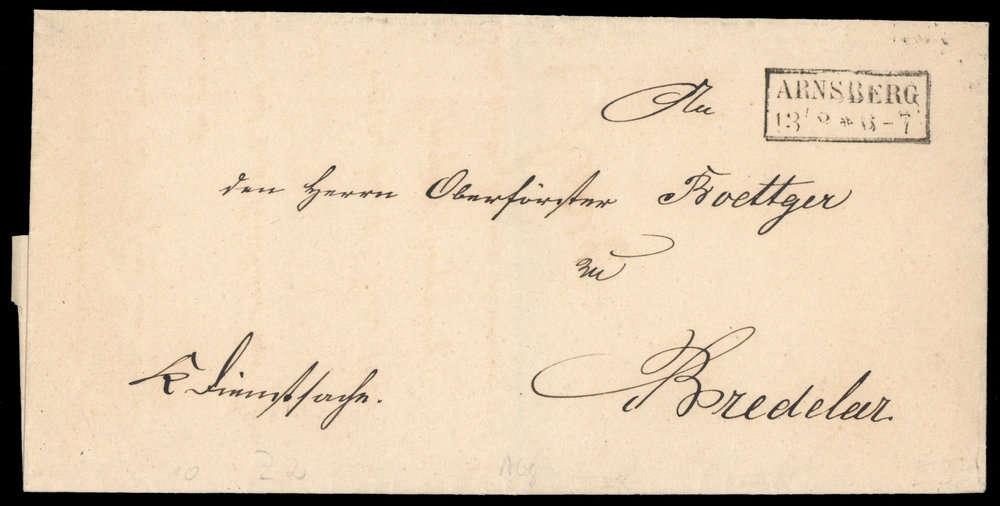 An
ARNSBERG
13
den Herrn Oberförster Boettger
zu
K Dienstsache.
Bredelar.
Z 2